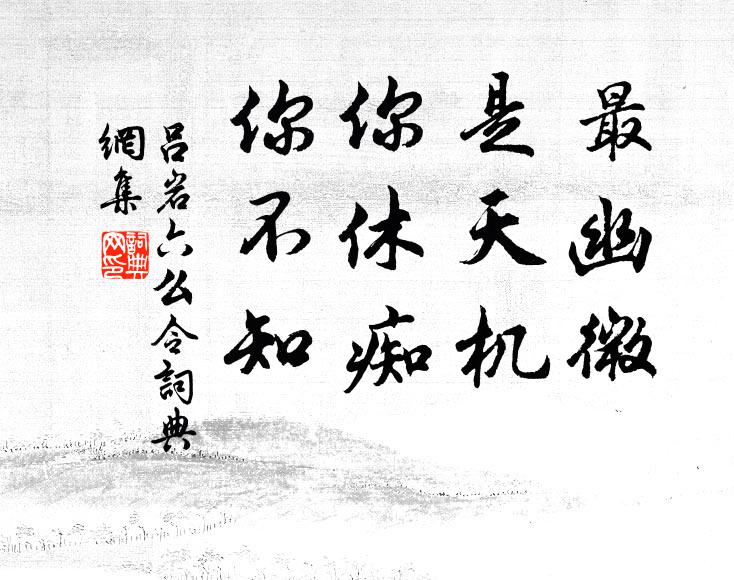 最幽微
是天机
你休痴
你不知
吕岩六么令詞典
網集
詞典
网印